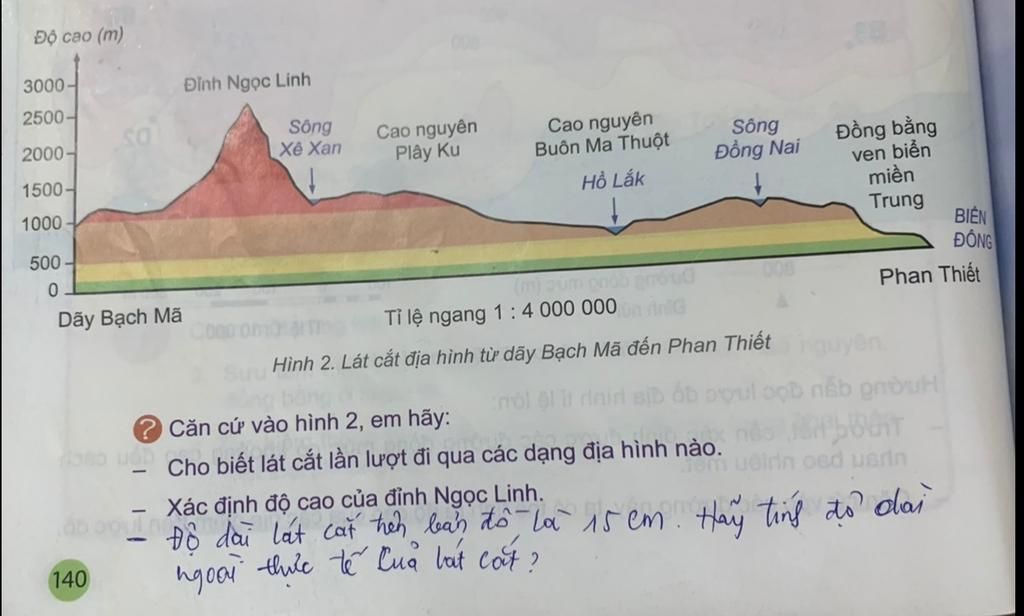 Độ cao (m)
3000
2500
2000
1500
1000
500
0
Đỉnh Ngọc Linh
Sông
Xê Xan
Cao nguyên
Plây Ku
Cao nguyên
Buôn Ma Thuột
Hồ Lắk
Sông
Đồng Nai
Đồng bằng
ven biển
miền
Trung
BIỂN
ĐÔNG
Dãy Bạch Mã
Tỉ lệ ngang 1 : 4 000 000
Phan Thiết
Hình 2. Lát cắt địa hình từ dãy Bạch Mã đến Phan Thiết
? Căn cứ vào hình 2, em hãy:
– Cho biết lát cắt lần lượt đi qua các dạng địa hình nào.
– Xác định độ cao của đỉnh Ngọc Linh.
– Độ dài lát cắt trên bản đồ là 15 cm. Hãy tính độ dài
ngoài thực tế của lát cắt?
140